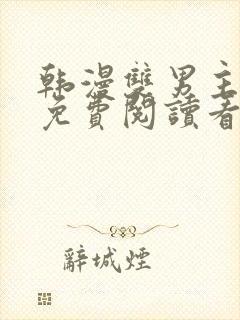 韩漫雙男主
免費閱讀看
辭城煙